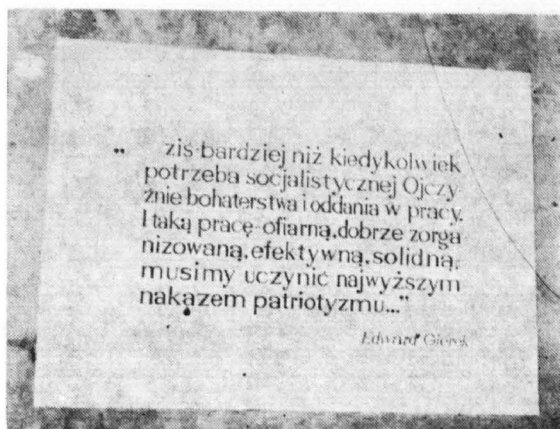 „ zis bardziej niż kiedykolwiek
potrzeba socjalistycznej Ojczy
źnie bohaterstwa i oddania w pracy.
I taką pracę-ofiarną,dobrze zorga
nizowaną,efektywną,solidną,
musimy uczynić najwyższym
nakazem patriotyzmu..."
Edward Gierek